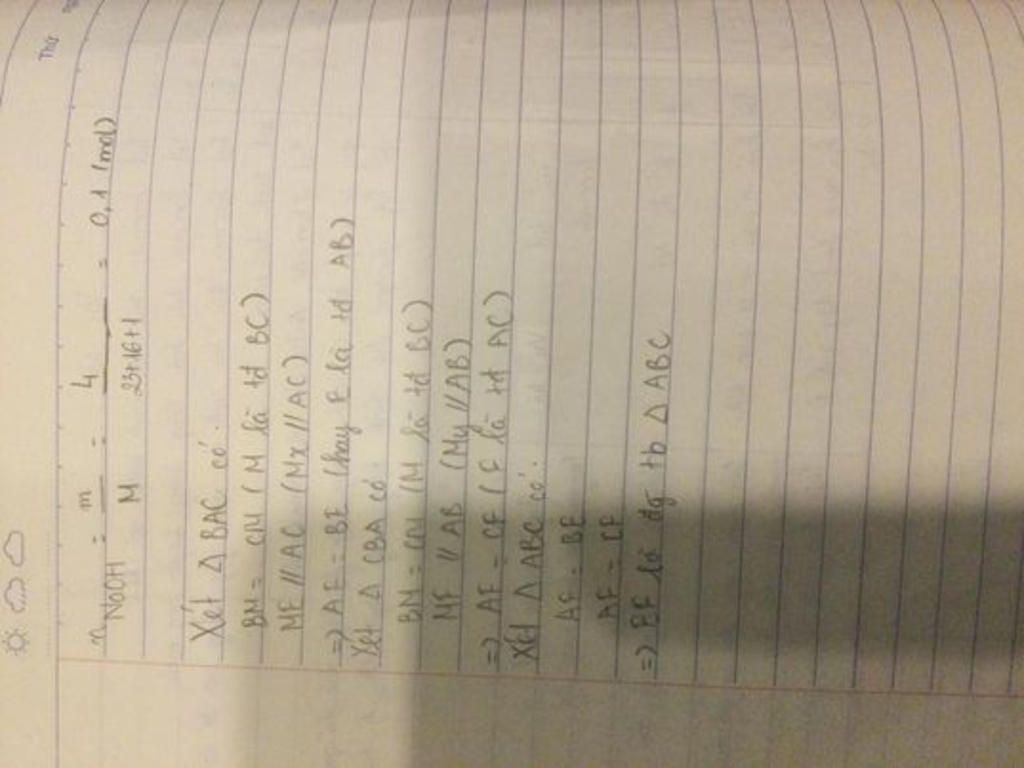 Thứ
n NaOH = m/M = 4/23+16+1 = 0,1 (mol)
Xét Δ BAC có:
BM = CM (M là tđ BC)
ME // AC (Mx // AC)
=> AE = BE (hay E là tđ AB)
Xét Δ CBA có
BM = CM (M là tđ BC)
MF // AB (My // AB)
=> AF = CF (F là tđ AC)
Xét Δ ABC có:
AE = BE
AF = CF
=> EF là đg tb Δ ABC